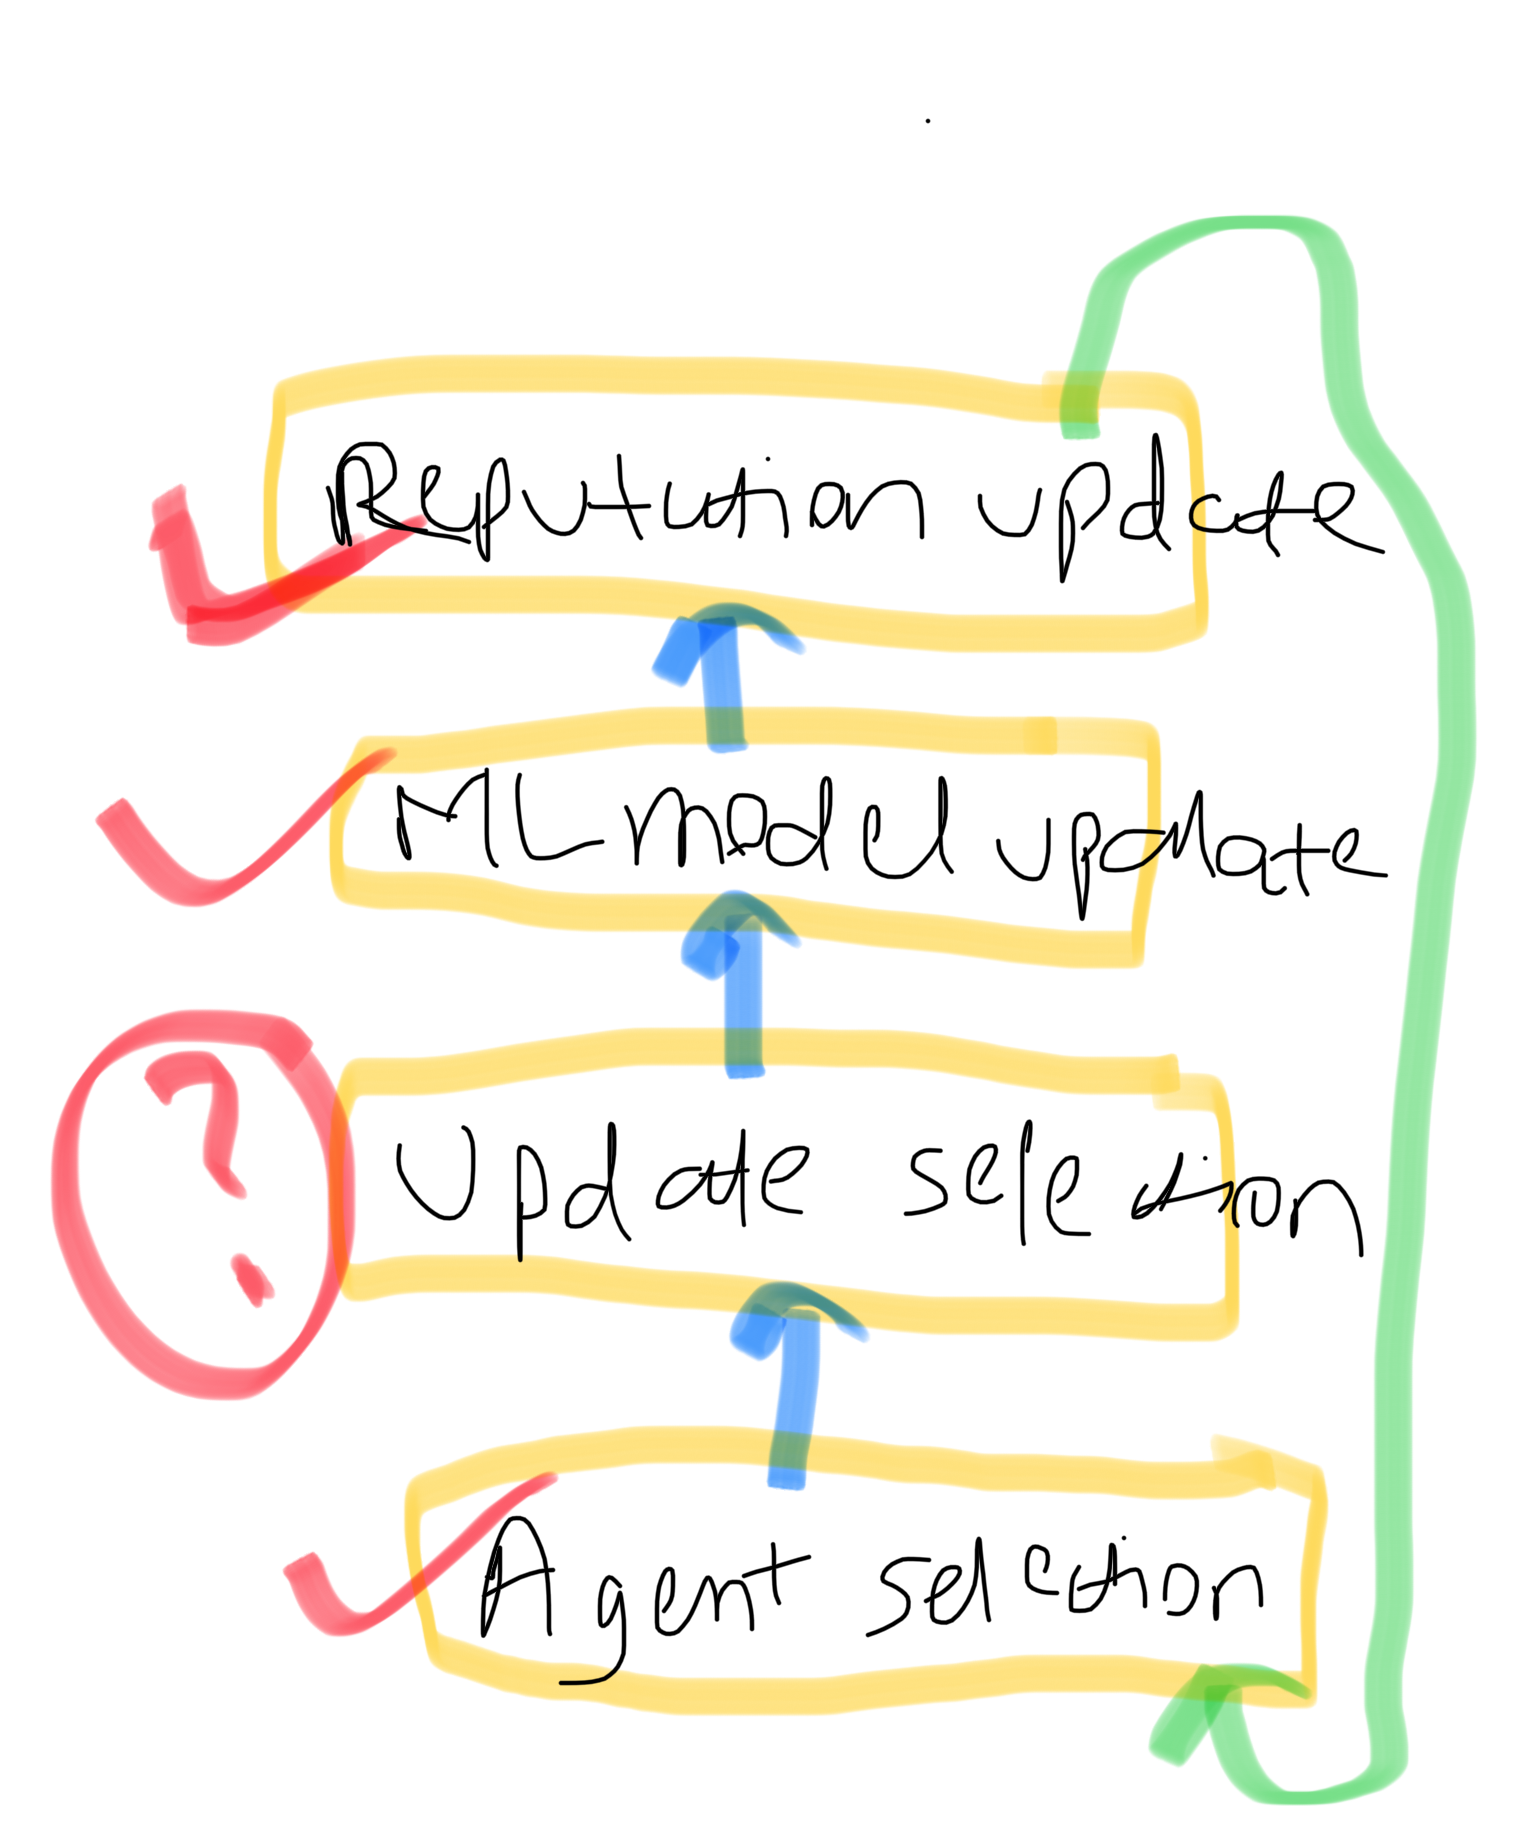 Reputation update
ML model update
?
Update selection
Agent selection